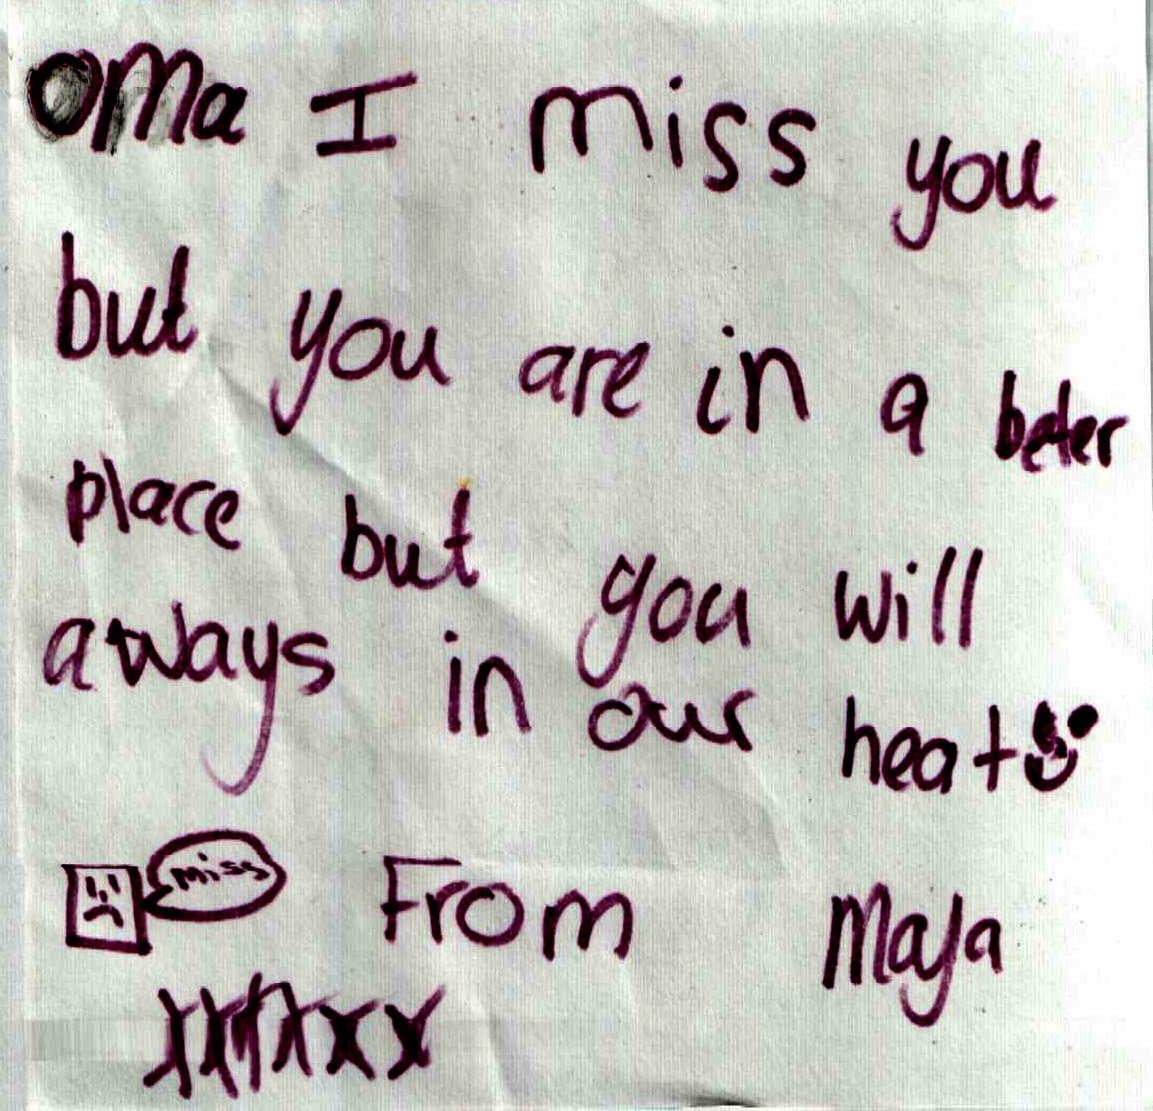 oma I miss you
but you are in a beter
place but you will
aways in our heat
miss
From Maja
xxxxxx